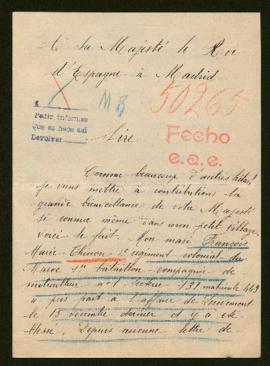 A Sa Majesté le Roi
d'Espagne à Madrid
MB
50265
Pedir informes
que se hace así
Devolver
Sire
Fecho
e.a.e.
Comme beaucoup d'autres hélas!
je viens mettre à contributions la
grande bienveillance de votre Majesté
si connue même dans mon petit village,
voici le fait. Mon mari François
Marie régiment colonial du
Maroc 1er bataillon compagnie de
mitrailleur 131 matricule
a pris part à l'affaire de
le 18 novembre dernier et y a été
blessé. Depuis aucune lettre de